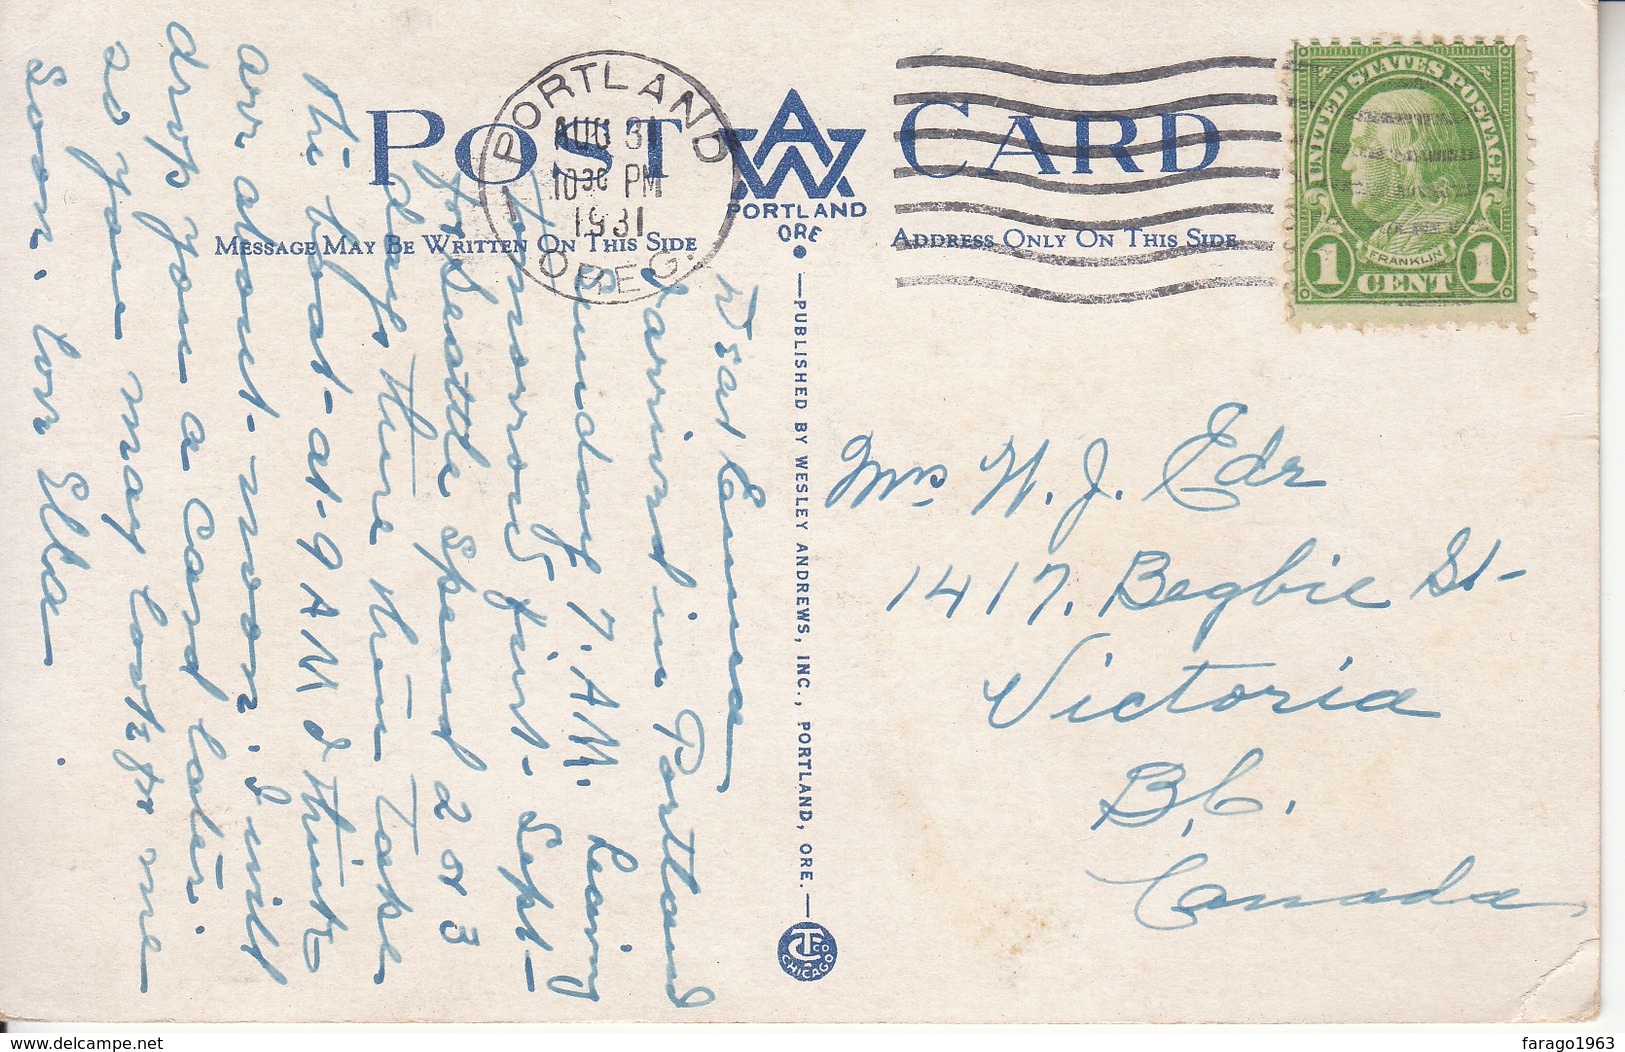 POST CARD
AW
PORTLAND
ORE
MESSAGE MAY BE WRITTEN ON THIS SIDE
ADDRESS ONLY ON THIS SIDE
PORTLAND
AUG 31
10 30 PM
1931
OREG.
1
UNITED STATES POSTAGE
FRANKLIN
1 CENT 1
Dear Emma
I arrived in Portland
Sunday 7. A.M. Leaving
tomorrow first - Sept -
for Seattle Spend 2 or 3
days there then take
the boat - at - 9 A M I think
arr about - noon. I will
drop you a Card later.
so you may look for me
soon. Lov Ella
—PUBLISHED BY WESLEY ANDREWS, INC., PORTLAND, ORE.—
CT CO
CHICAGO
Mrs W. J. Edr
1417, Begbie St-
Victoria
B,C.
Canada,
delcampe.net
farago1963